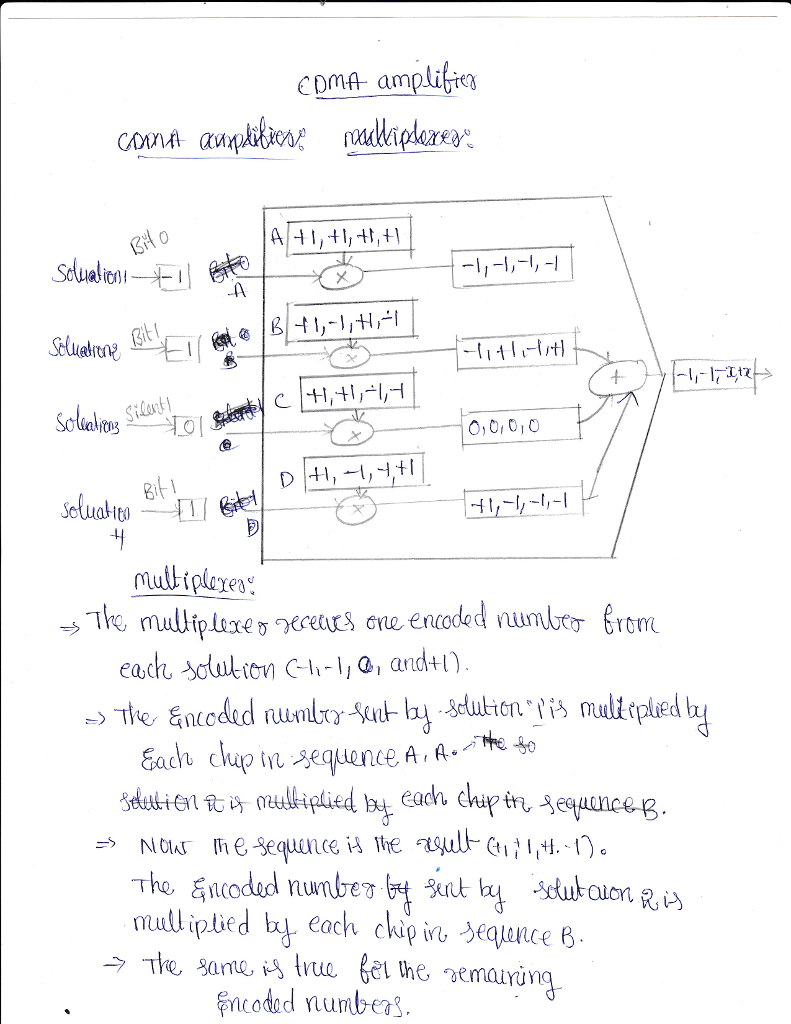 CDMA amplifier
CDMA amplifiers: multiplexer:
Bit 0
Soluation1 -1 A
A +1, +1, +1, +1
×
-1, -1, -1, -1
Bit 1
Soluation2 -1 B
B +1, -1, +1, -1
×
-1, +1, -1, +1
Silent1
Soleation3 0 C
C +1, +1, -1, -1
×
0, 0, 0, 0
Bit 1
soluation 1 D
4
D +1, -1, -1, +1
×
+1, -1, -1, -1
+
-1, -1, -x, +x
multiplexer:
⇒ The multiplexer receives one encoded number from
each solution (-1, -1, 0, and +1).
⇒ The Encoded number sent by solution 1 is multiplied by
Each chip in sequence A, A. → The so
solution 2 is multiplied by each chip in sequence B.
⇒ Now the sequence is the result
The Encoded number by sent by solutaion 2 is
multiplied by each chip in seqlence B.
→ The same is true for the remaining
Encoded numbers.